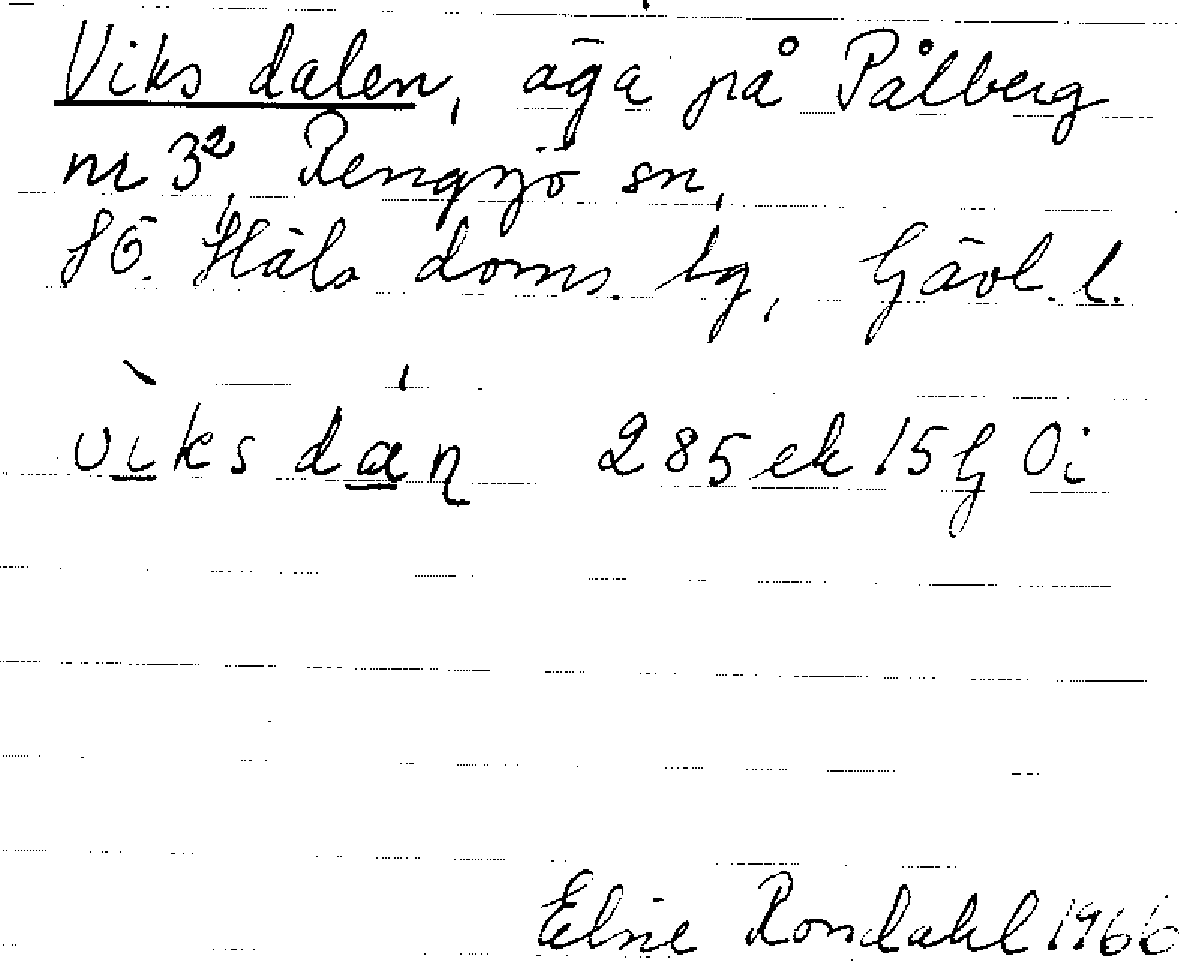 Viksdalen, äga på Pålberg
nr 3², Rengsjö sn,
SÖ. Häls doms. lg, Gävl. l.
vìksdán 285 ek 15 G Oi
Elsie Rondahl 1966